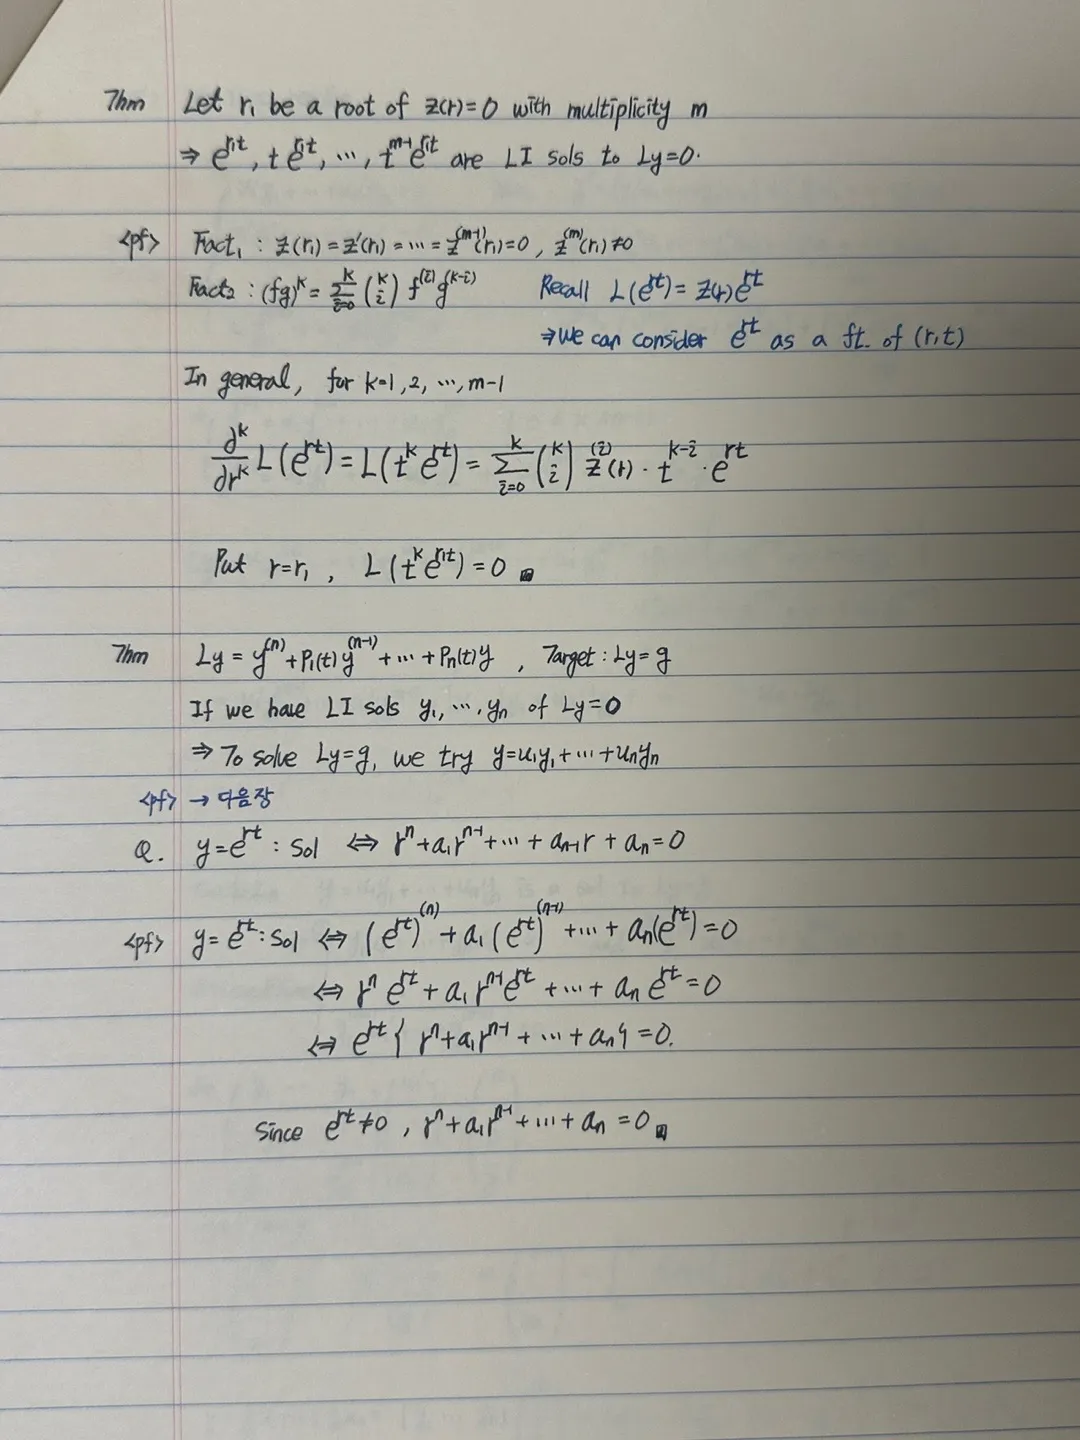 Thm Let r₁ be a root of Z(r)=0 with multiplicity m
⇒ e^{r₁t}, te^{r₁t}, ⋯, t^{m-1}e^{r₁t} are LI sols to Ly=0.
<pf> Fact₁ : Z(r₁)=Z'(r₁)=⋯=Z^{(m-1)}(r₁)=0, Z^{(m)}(r₁)≠0
Fact₂ : (fg)^k = \sum_{i=0}^{k} \binom{k}{i} f^{(i)} g^{(k-i)} Recall L(e^{rt})=Z(r)e^{rt}
⇒ We can consider e^{rt} as a ft. of (r,t)
In general, for k=1,2,⋯,m-1
\frac{∂^k}{∂r^k} L(e^{rt}) = L(t^k e^{rt}) = \sum_{i=0}^{k} \binom{k}{i} Z^{(i)}(r)·t^{k-i}·e^{rt}
Put r=r₁, L(t^k e^{r₁t})=0
Thm Ly=y^{(n)}+P₁(t)y^{(n-1)}+⋯+Pₙ(t)y, Target : Ly=g
If we have LI sols y₁,⋯,yₙ of Ly=0
⇒ To solve Ly=g, we try y=u₁y₁+⋯+uₙyₙ
<pf> → 다음장
Q. y=e^{rt} : Sol ⇔ r^n+a₁r^{n-1}+⋯+a_{n-1}r+aₙ=0
<pf> y=e^{rt} : Sol ⇔ (e^{rt})^{(n)}+a₁(e^{rt})^{(n-1)}+⋯+aₙ(e^{rt})=0
⇔ r^n e^{rt}+a₁r^{n-1}e^{rt}+⋯+aₙe^{rt}=0
⇔ e^{rt}{r^n+a₁r^{n-1}+⋯+aₙ}=0.
Since e^{rt}≠0, r^n+a₁r^{n-1}+⋯+aₙ=0